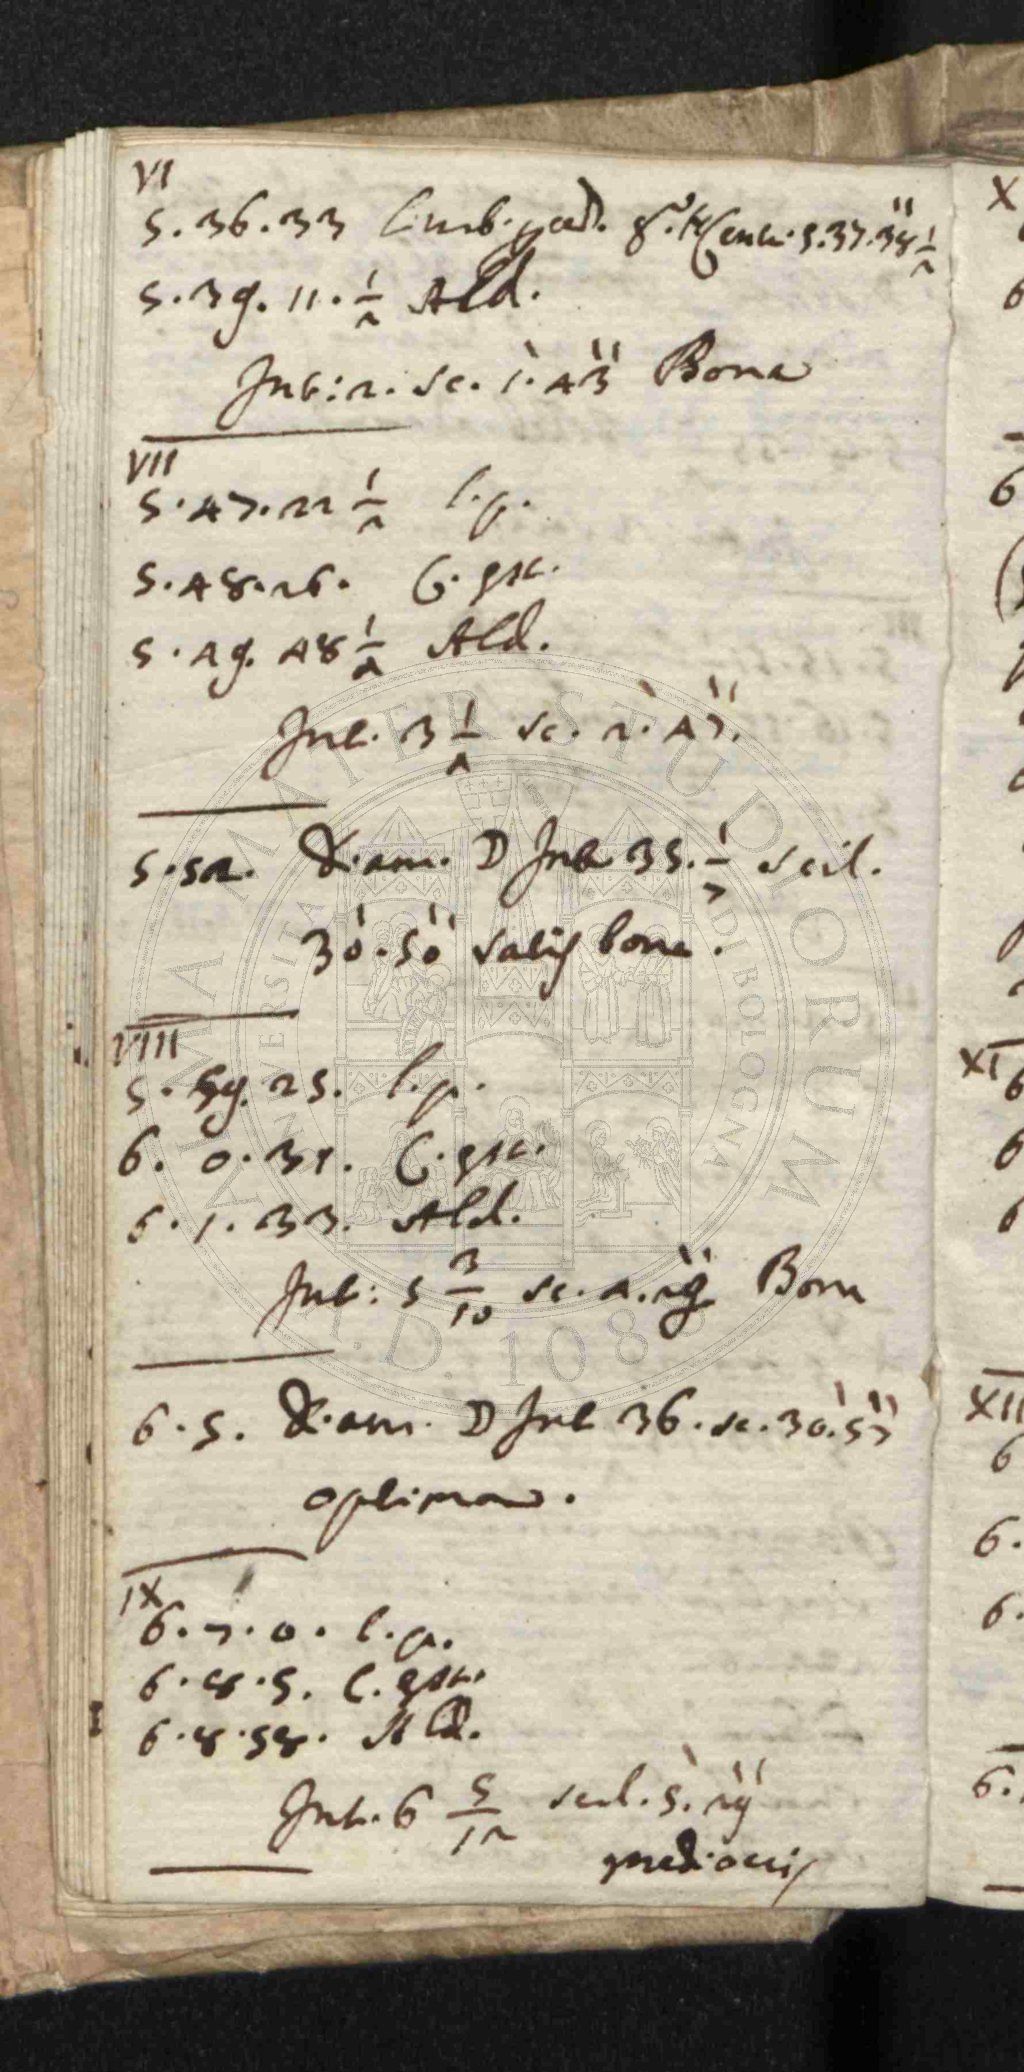 VI
5. 36. 33 Limb. præd. Centr. 5. 37. 38 1/2
5. 39. 11. 1/2 Ald.
Int: 2. sc. 1'. 43'' Bona
VII
5. 47. 22 1/2 l. p.
5. 48. 26. C. gsr.
5. 49. 48 1/2 Ald.
Int. 3 1/2 sc. 2'. 47''.
5. 52. Diam. D Int 35. 1/7 scil.
30'. 50'' satis bona.
VIII
5. 59. 25. l. p.
6. 0. 39. C. gsr.
6. 1. 33. Ald.
Int: 5 3/10 sc. 4. 29'' Bona
6. 5. Diam. D Int 36. sc. 30'. 57''
optima.
IX
6. 7. 0. l. p.
6. 8. 5. C. gsr.
6. 8. 58. Ald.
Int. 6 5/12 scil. 5'. 29''
mediocris
X
6
6
XI
6
6
6
XII
6
6.
6.
6.
ALMA MATER STUDIORUM
UNIVERSITÀ DI BOLOGNA
A.D. 1088